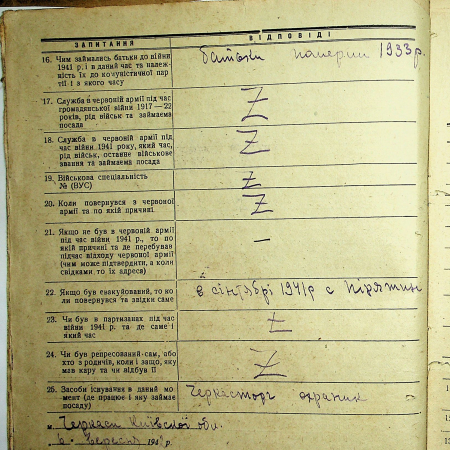 ЗАПИТАННЯ
ВІДПОВІДІ
16. Чим займались батьки до війни
1941 р. і в даний час та належ-
ність їх до комуністичної пар
тії і з якого часу
батьки померли 1933 р.
17. Служба в червоній армії під час
громадянської війни 1917—22
роках, рід військ та займаєма
посада
Z
18. Служба в червоній армії під
час війни 1941 року, який час,
рід військ, останнє військове
звання та займаєма посада
Z
19. Військова спеціальність
№ (ВУС)
Z
20. Коли повернувся з червоної
армії та по якій причині
Z
21. Якщо не був в червоній армії
під час війни 1941 р., то по
якій причині та де перебував
підчас відходу червоної армії
(чим може підтвердити, а коли
свідками то їх адреса)
—
22. Якщо був евакуйований, то ко
ли повернувся та звідки саме
в сінтябрі 1941 р с Пірятин
23. Чи був в партизанах під час
війни 1941 р. та де саме і
який час
Z
24. Чи був репресований сам, або
хто з родичів, коли і защо, яку
мав кару та чи відбув її
Z
25. Засоби існування в даний мо
мент (де працює і яку займає
посаду)
Черкасторг охраник
м. Черкаси Київської обл.
6 - вересня 194 р.